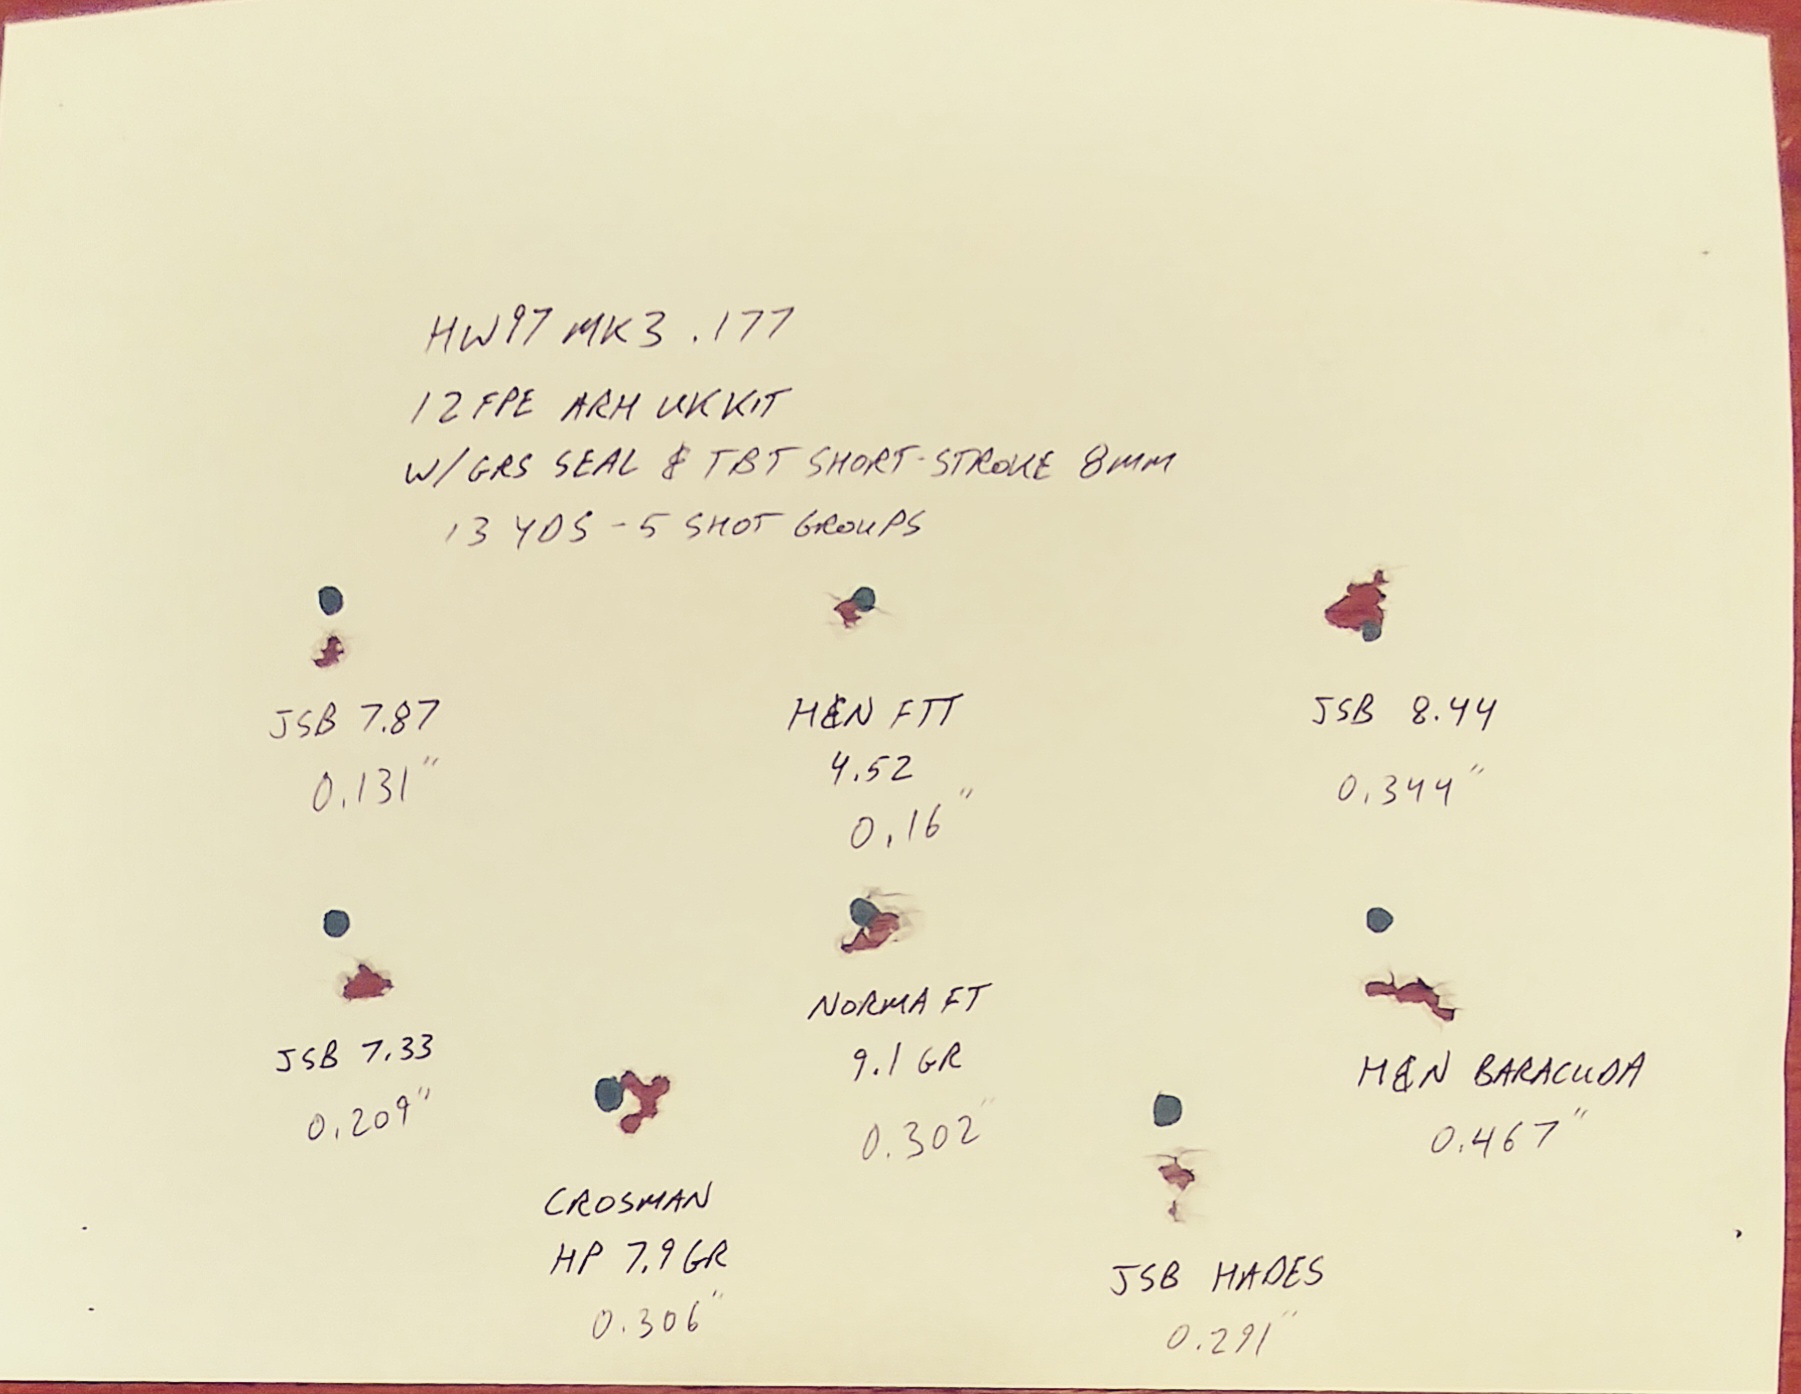 HW97 MK3 .177
12 FPE ARH UK KIT
W/GRS SEAL & TBT SHORT-STROKE 8MM
13 YDS - 5 SHOT GROUPS
JSB 7.87
0.131"
H&N FTT
4.52
0.16"
JSB 8.44
0.344"
JSB 7.33
0.209"
NORMA FT
9.1 GR
0.302"
H&N BARACUDA
0.467"
CROSMAN
HP 7.9 GR
0.306"
JSB HADES
0.291"